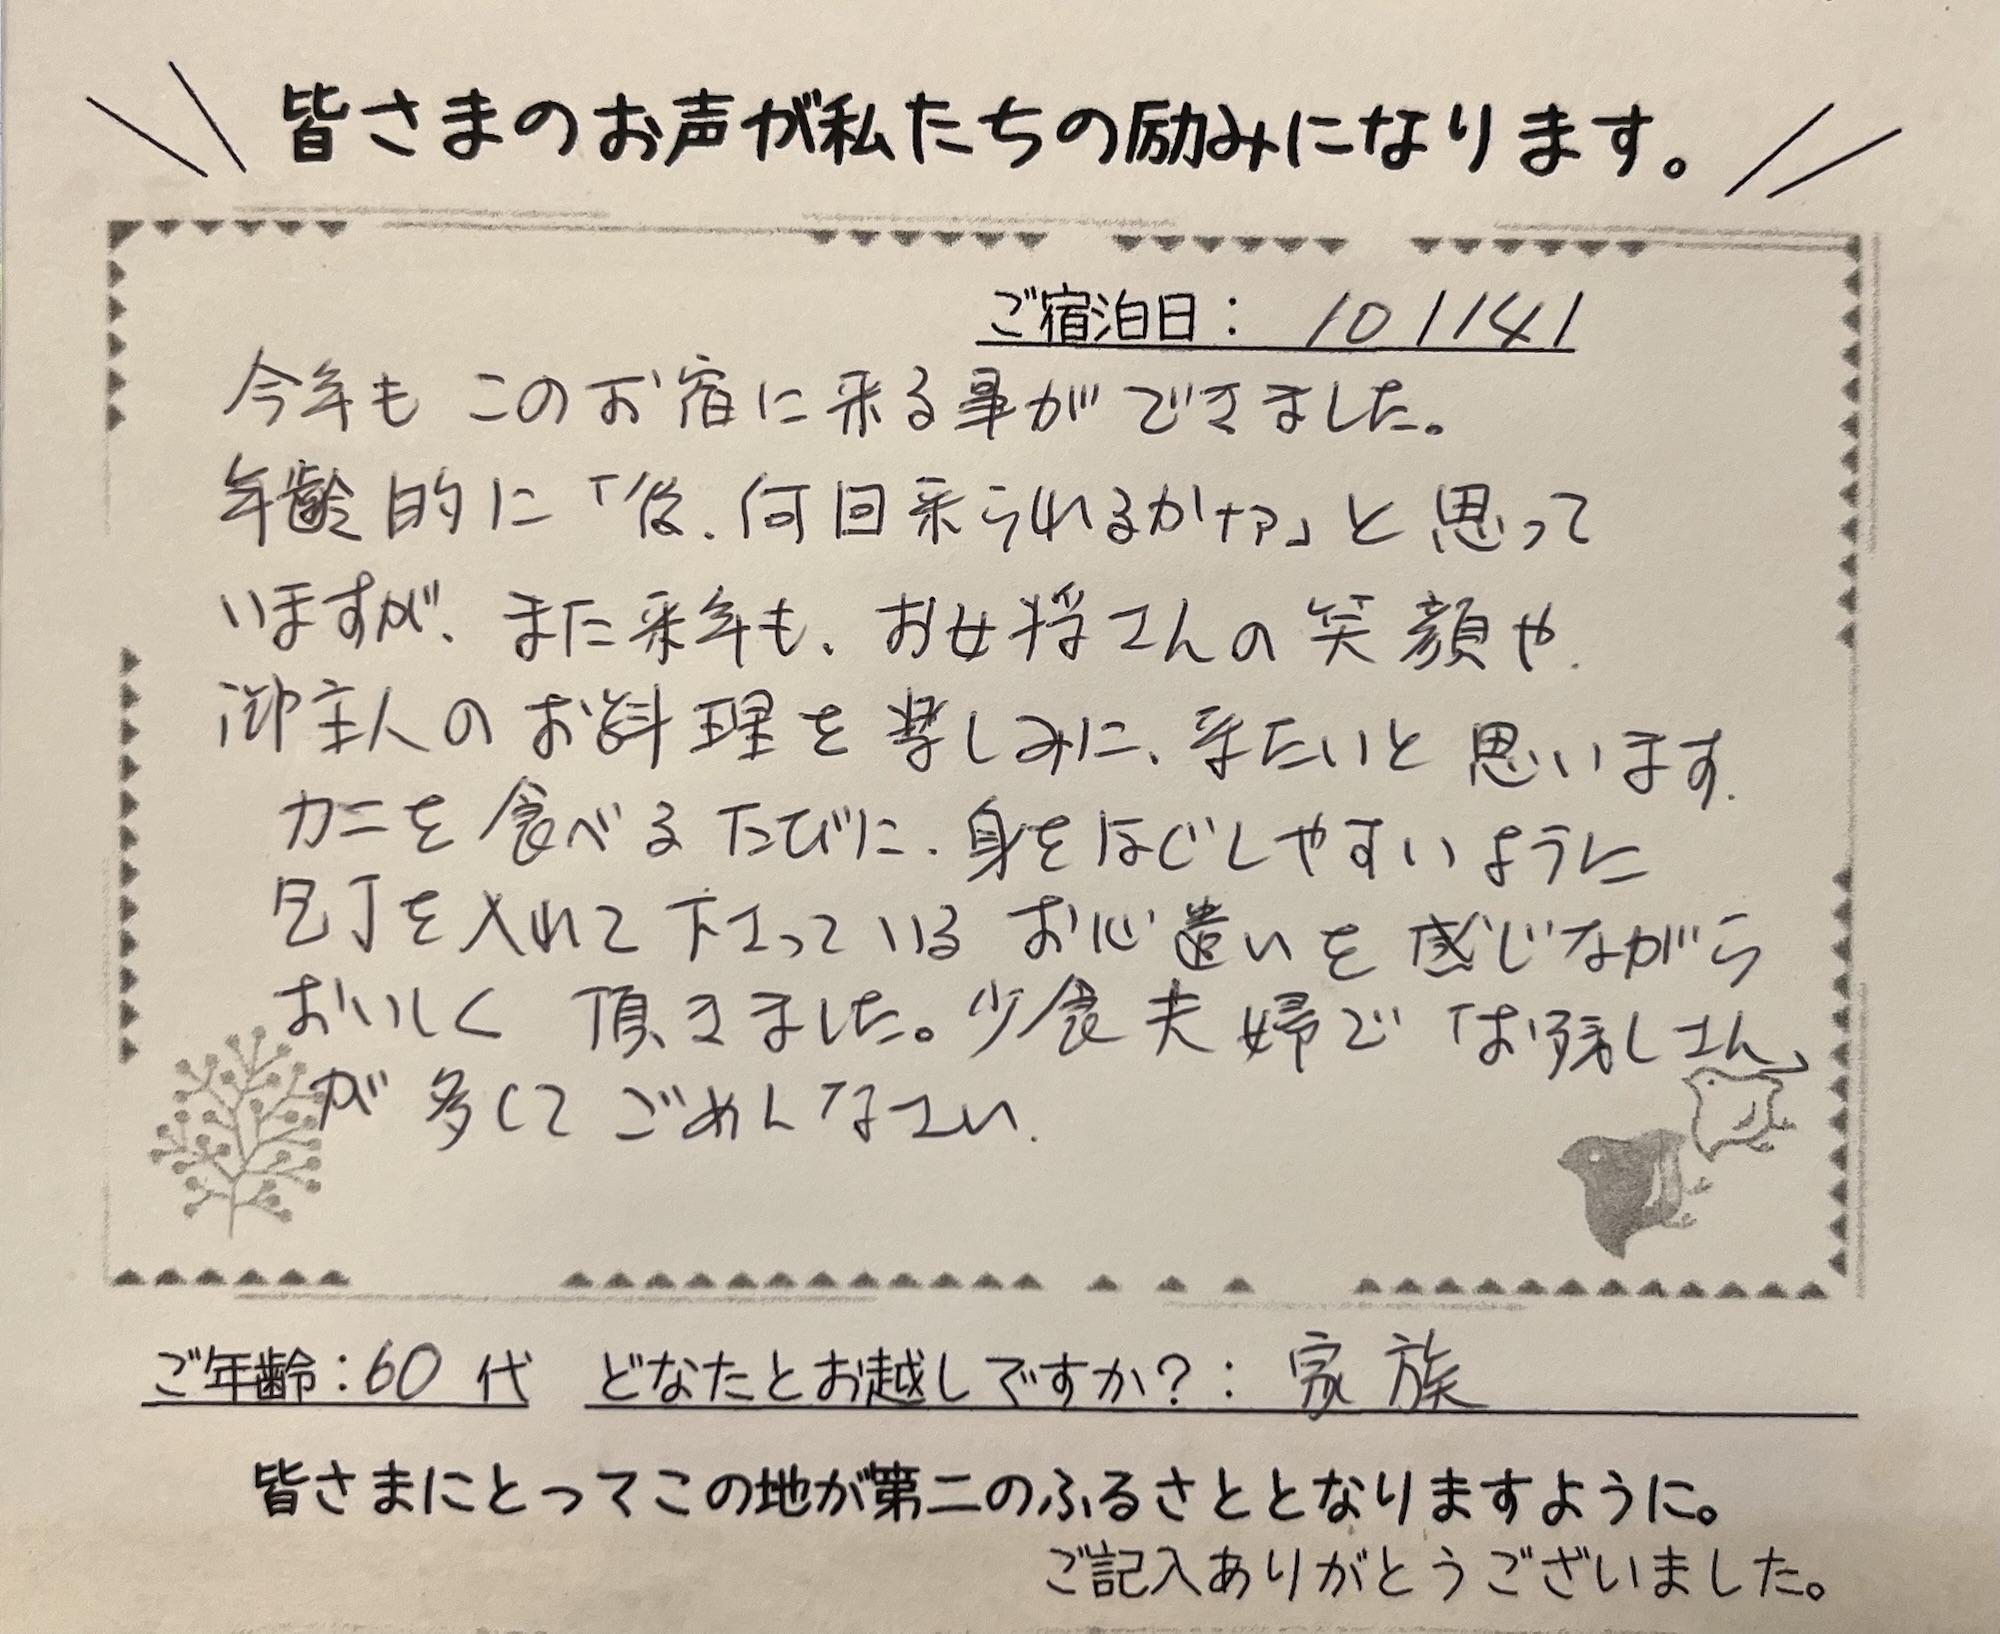 皆さまのお声が私たちの励みになります。
ご宿泊日： 101141
今年も このお宿に来る事ができました。
年齢的に「後、何回来られるかナァ」と思って
いますが、また来年も、お女将さんの笑顔や、
御主人のお料理を楽しみに、来たいと思います。
カニを食べるたびに、身をほぐしやすいように
包丁を入れて下さっているお心遣いを感じながら
おいしく 頂きました。少食夫婦で「お残しさん」
が多くてごめんなさい。
ご年齢：60 代 どなたとお越しですか？： 家族
皆さまにとってこの地が第二のふるさととなりますように。
ご記入ありがとうございました。